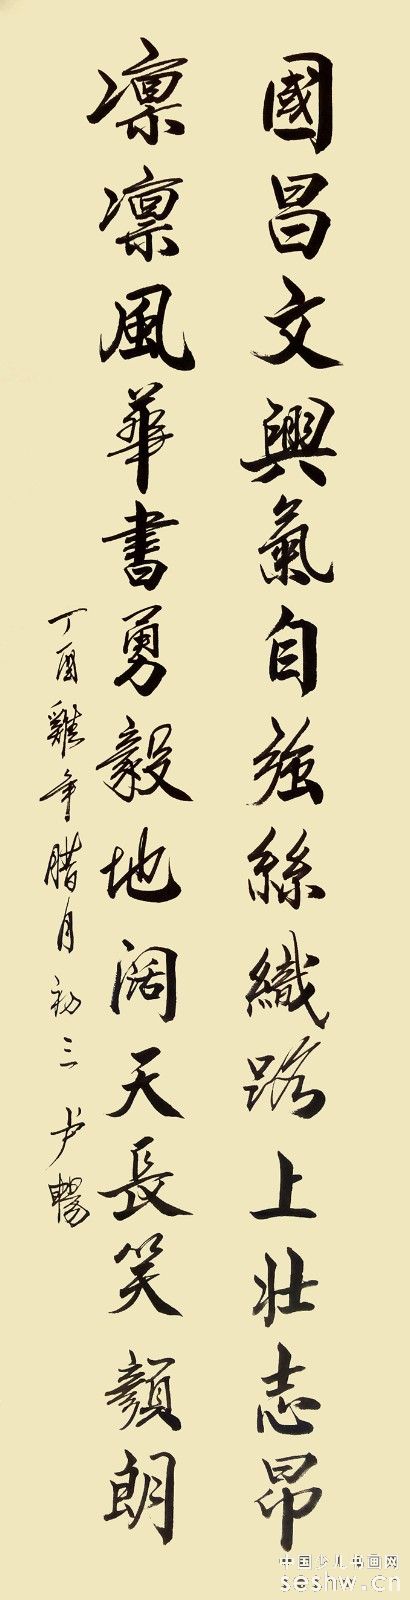 國昌文興氣自强絲織路上壯志昂
凛凛風華書勇毅地阔天長笑顏朗
丁酉雞年腊月初三 卢暢
中国少儿书画网
seshw.cn